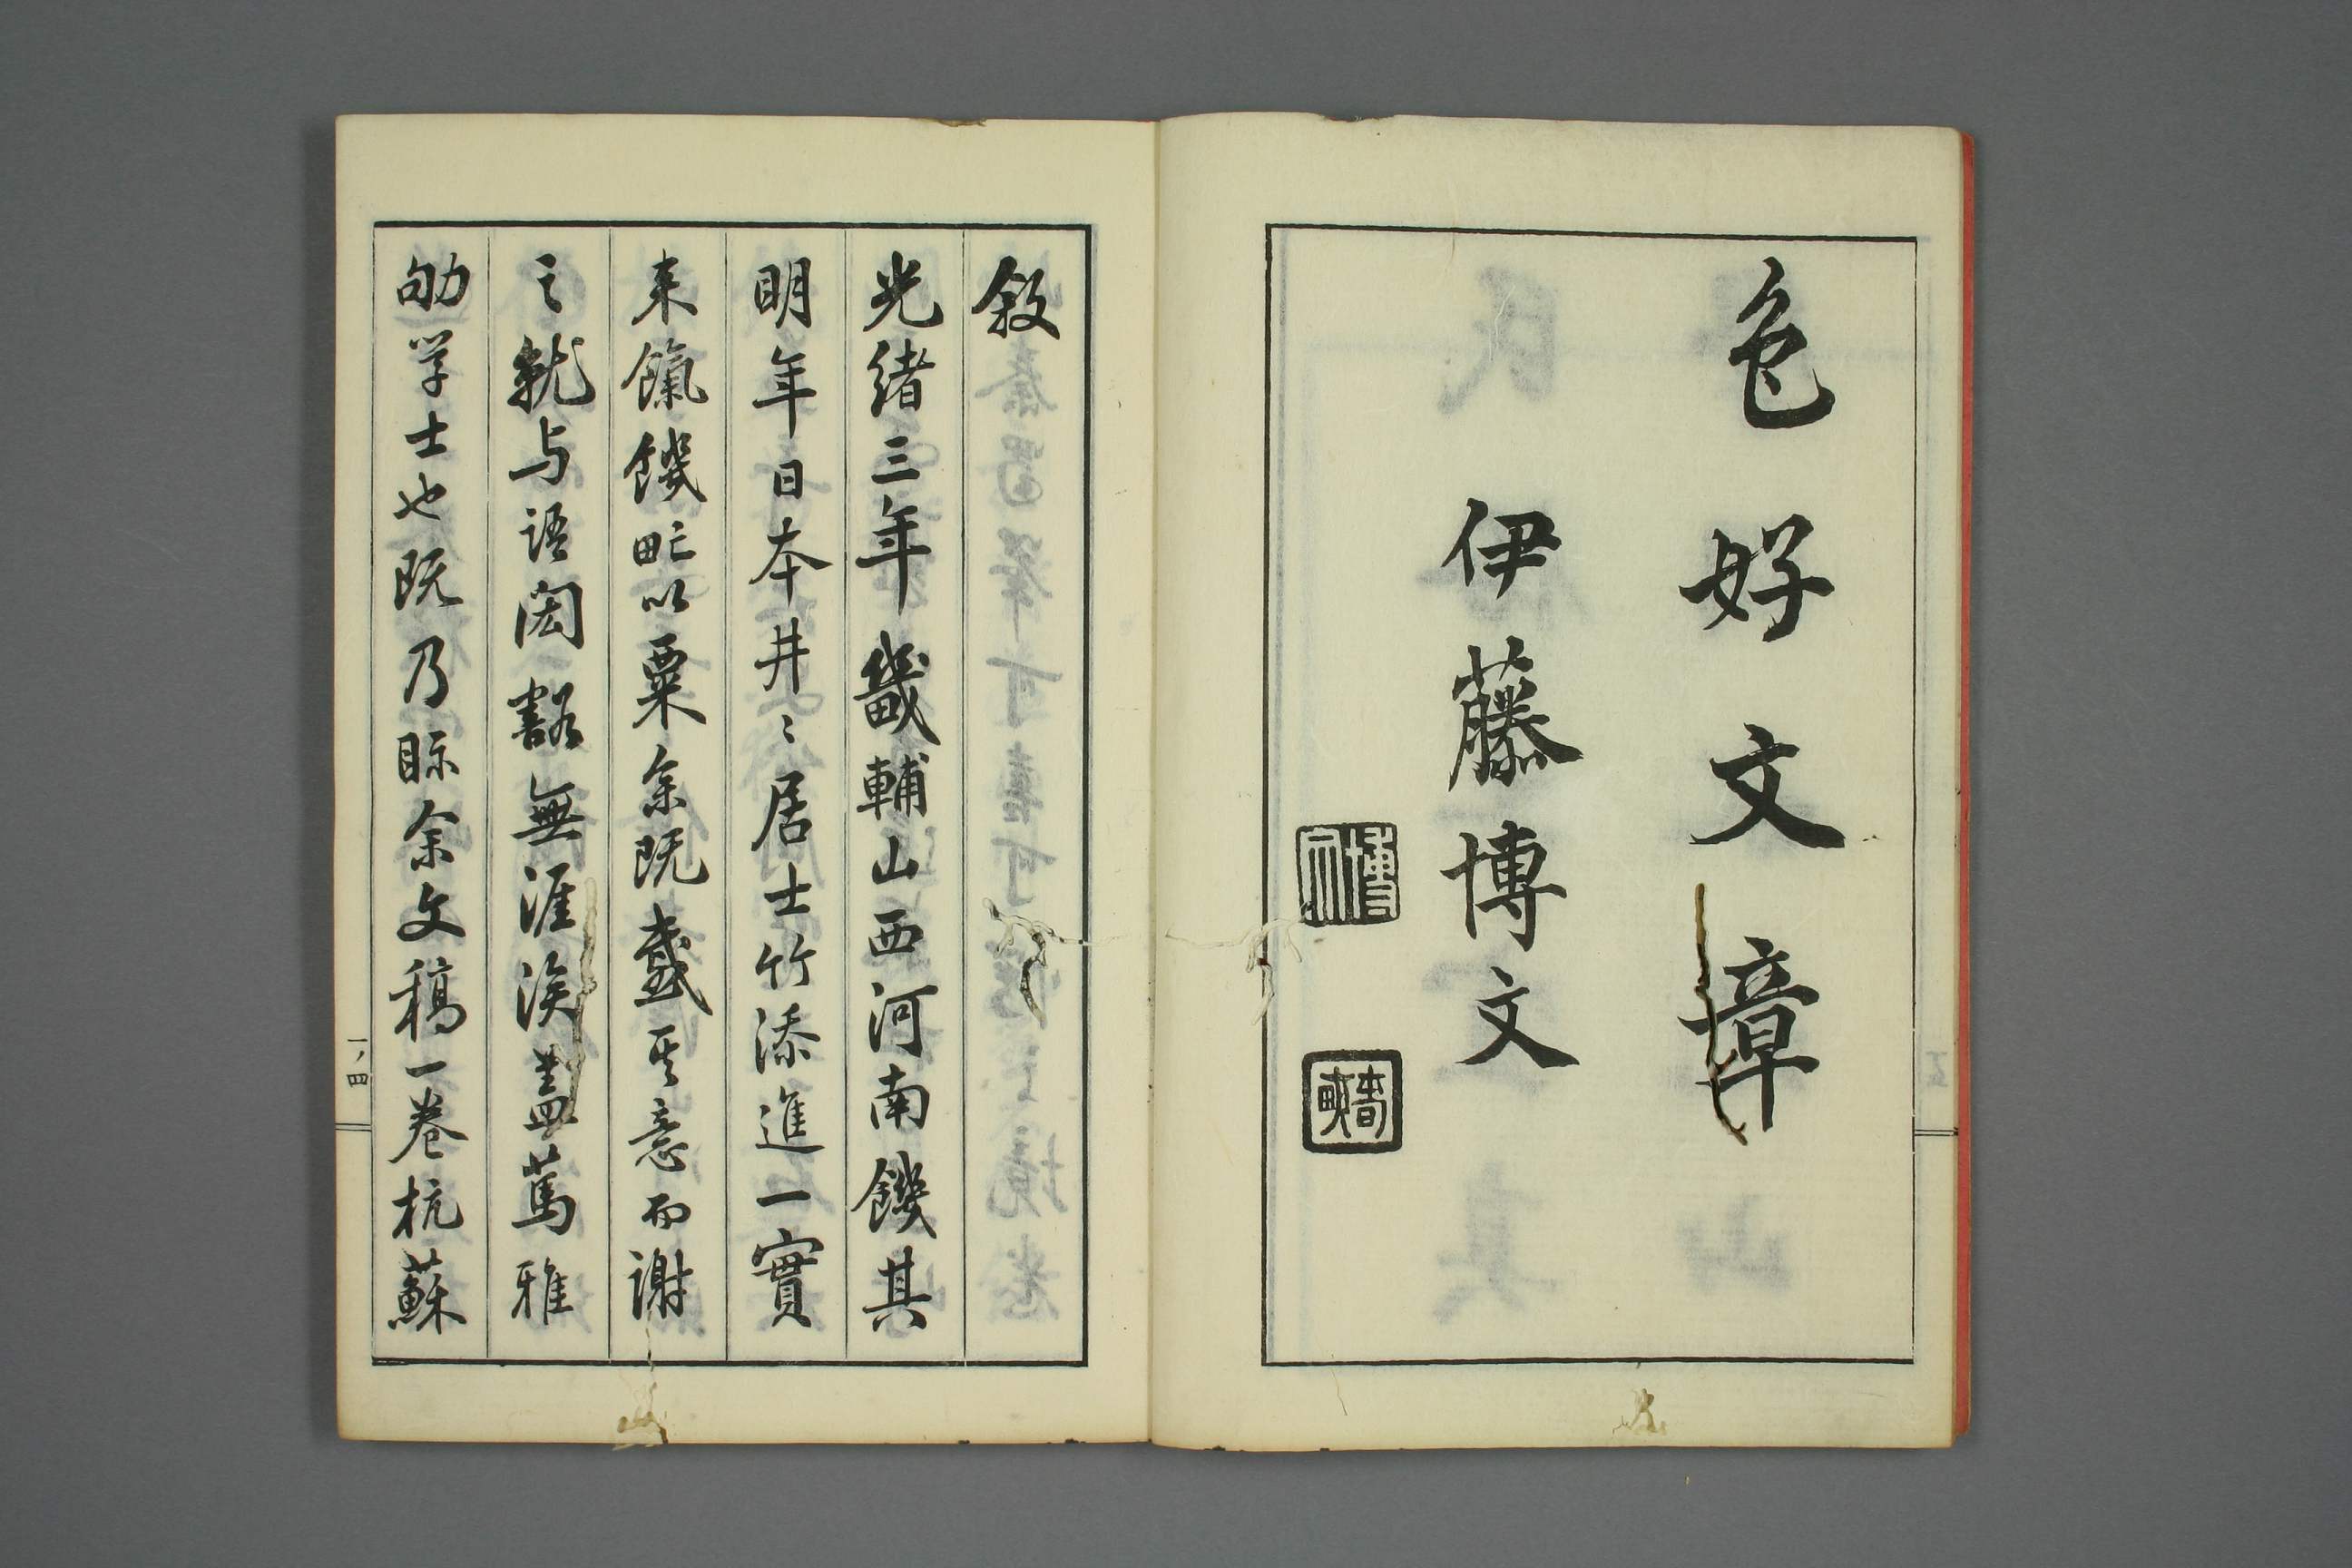 色好文章
伊藤博文
博文
春畝
叙
光緒三年畿輔山西河南饑其
明年日本井〻居士竹添進一實
来餼饑氓以粟余既感其意而謝
之就与語閎豁無涯涘盖篤雅
劬学士也既乃眎余文稿一巻杭蘇
一ノ四